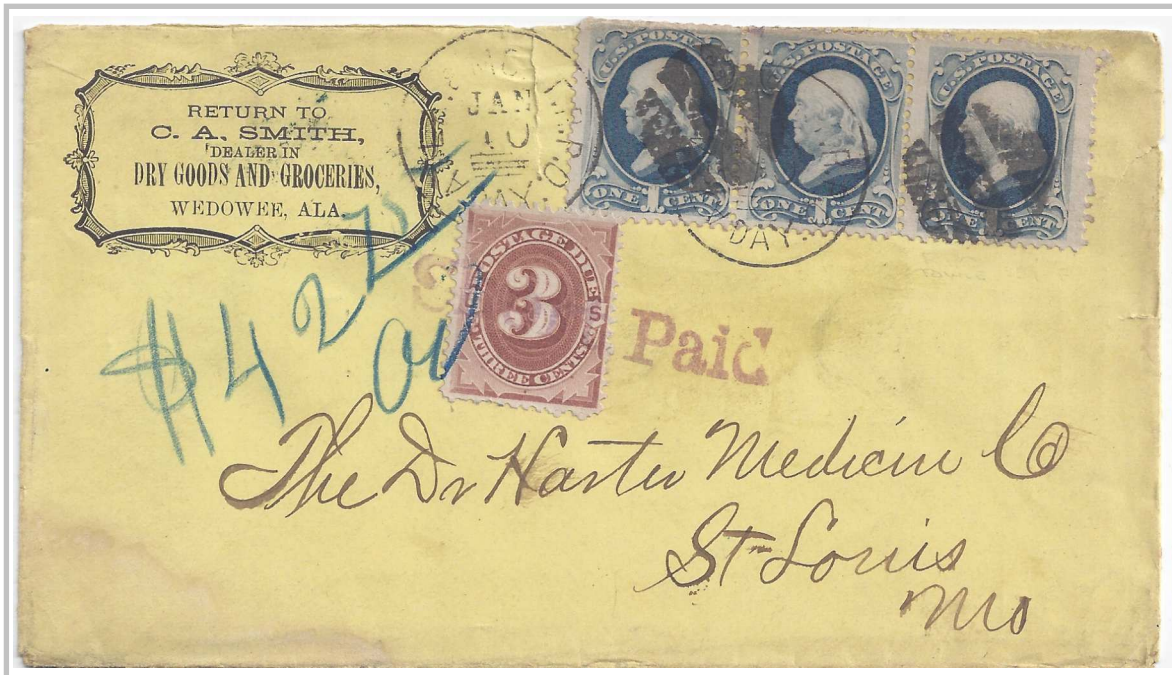 RETURN TO
C. A. SMITH,
DEALER IN
DRY GOODS AND GROCERIES,
WEDOWEE, ALA.
JAN
10
R.P.O.
DAY
U.S. POSTAGE
ONE 1 CENT
U.S. POSTAGE
ONE 1 CENT
U.S. POSTAGE
ONE 1 CENT
POSTAGE DUE
3
THREE CENTS
Paid
$42
The Dr Harter Medicine Co
St Louis
Mo